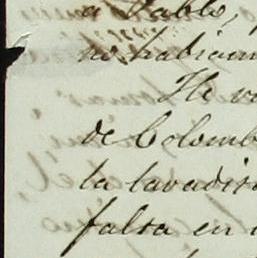 a Pablo,
no habiam
He v
de Colomb
la lavadis
falta en